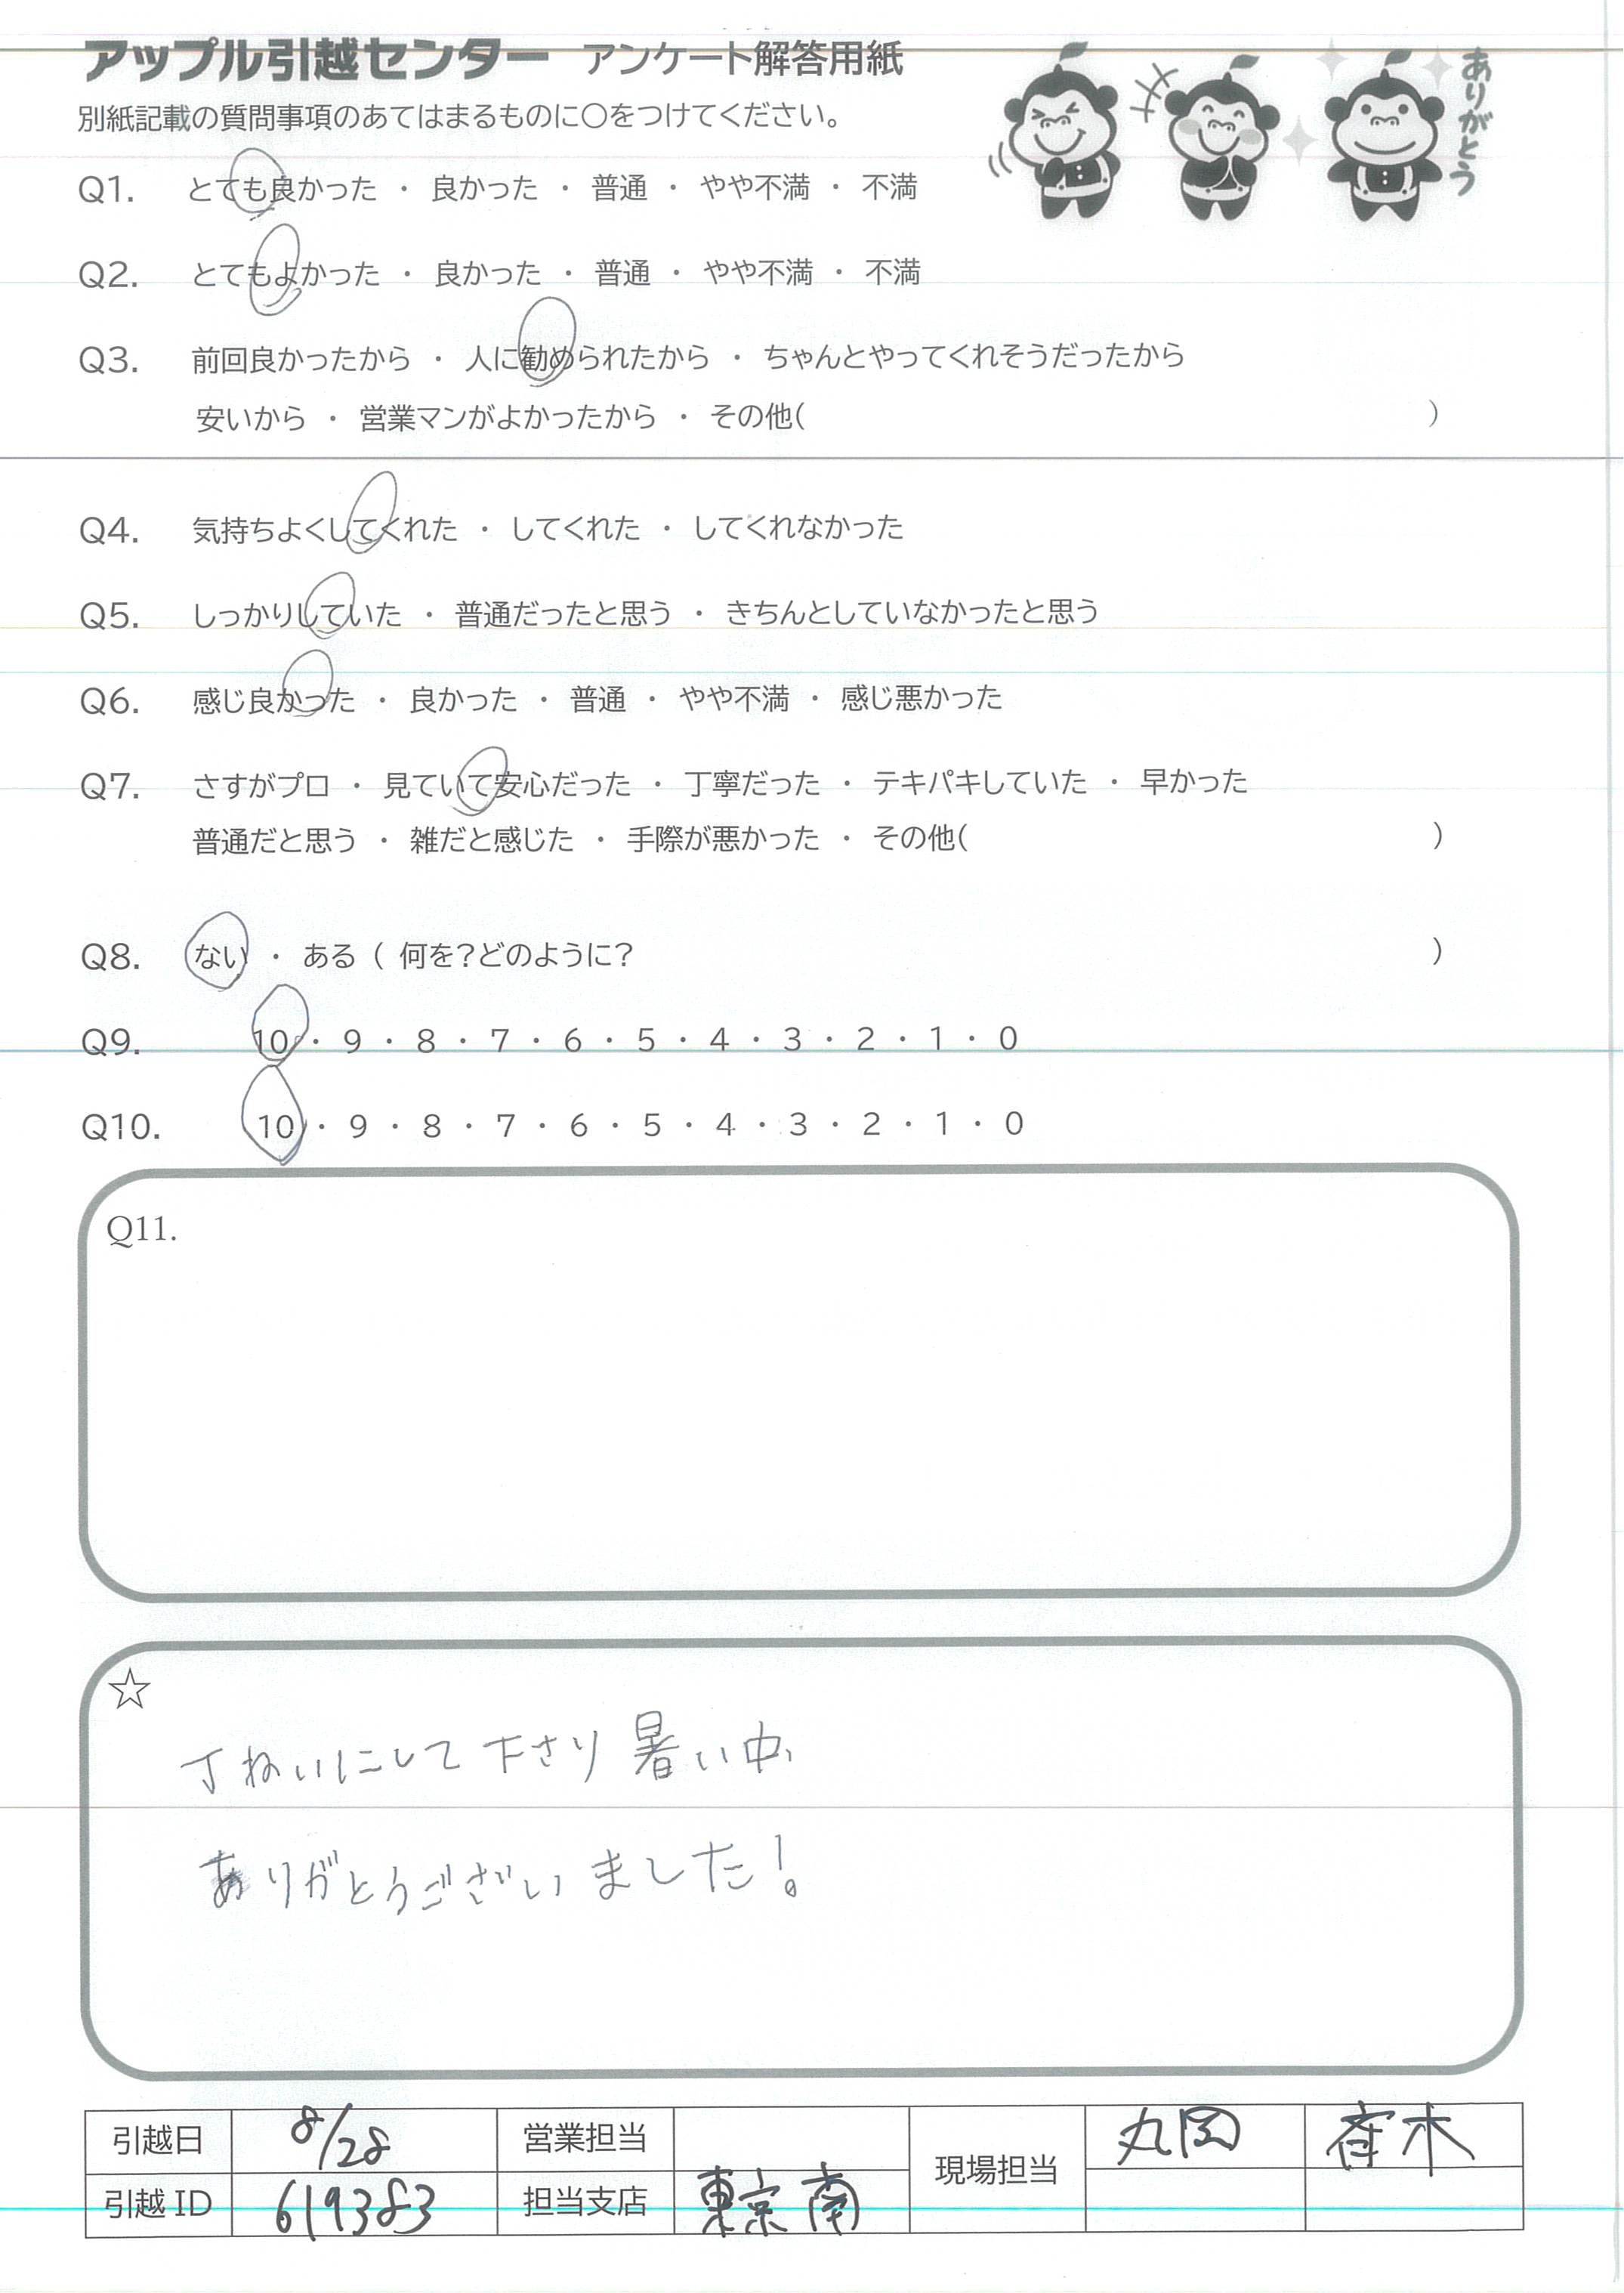 アップル引越センター アンケート解答用紙
ありがとう
別紙記載の質問事項のあてはまるものに〇をつけてください。
Q1. とても良かった ・ 良かった ・ 普通 ・ やや不満 ・ 不満
Q2. とてもよかった ・ 良かった ・ 普通 ・ やや不満 ・ 不満
Q3. 前回良かったから ・ 人に勧められたから ・ ちゃんとやってくれそうだったから
安いから ・ 営業マンがよかったから ・ その他( )
Q4. 気持ちよくしてくれた ・ してくれた ・ してくれなかった
Q5. しっかりしていた ・ 普通だったと思う ・ きちんとしていなかったと思う
Q6. 感じ良かった ・ 良かった ・ 普通 ・ やや不満 ・ 感じ悪かった
Q7. さすがプロ ・ 見ていて安心だった ・ 丁寧だった ・ テキパキしていた ・ 早かった
普通だと思う ・ 雑だと感じた ・ 手際が悪かった ・ その他( )
Q8. ない ・ ある ( 何を?どのように? )
Q9. 10 ・ 9 ・ 8 ・ 7 ・ 6 ・ 5 ・ 4 ・ 3 ・ 2 ・ 1 ・ 0
Q10. 10 ・ 9 ・ 8 ・ 7 ・ 6 ・ 5 ・ 4 ・ 3 ・ 2 ・ 1 ・ 0
Q11.
☆
丁ねいにして下さり暑い中、
ありがとうございました!
引越日 8/28 営業担当 現場担当 丸岡 斉木
引越ID 619383 担当支店 東京南